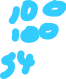 100
100
54